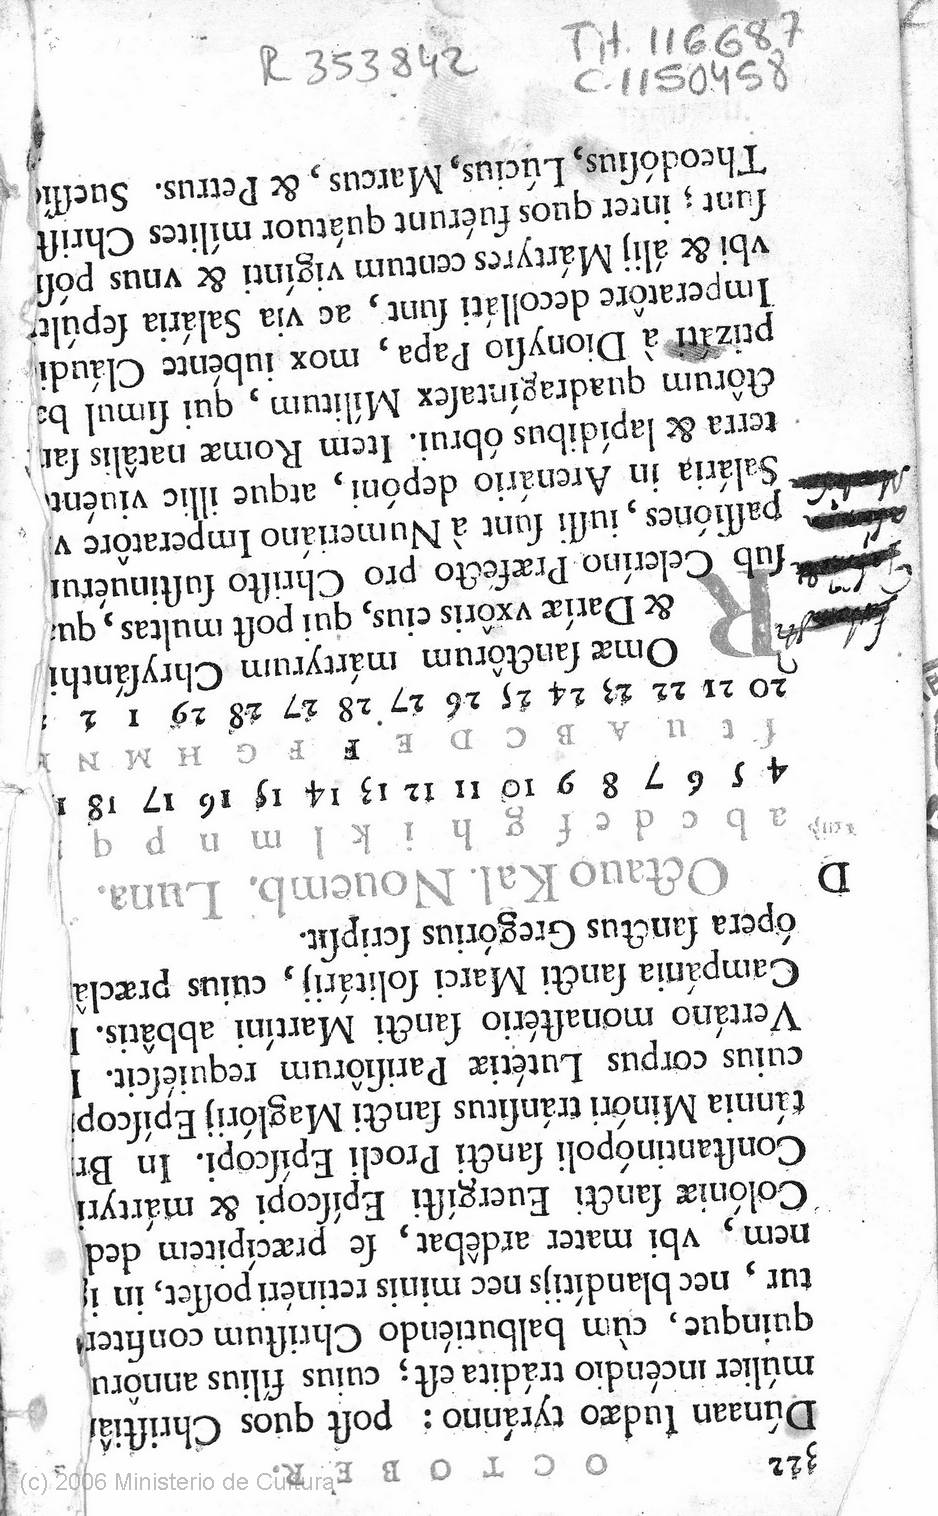 R 353842
T.H. 116687
C.1150458
322 OCTOBER.
Dúnaan Iudæo tyránno : post quos Christiâ
múlier incéndio trádita est; cuius fílius annôru
quinque, cùm balbutiéndo Christum confiter
tur, nec blandítijs nec minis retinéri posset, in i
nem, vbi mater ardêbat, se præcípitem ded
Colóniæ sancti Euergísti Epíscopi & mártyri
Constantinópoli sancti Procli Epíscopi. In Br
tánnia Minóri tránsitus sancti Maglórij Epíscop
cuius corpus Lutétiæ Parisiôrum requiéscit. I
Vertáno monastério sancti Martíni abbâtis. I
Campánia sancti Marci solitárij, cuius præclâ
ópera sanctus Gregórius scripsit.
D Octauo Kal. Nouemb. Luna.
a b c d e f g h i k l m n p q
4 5 6 7 8 9 10 11 12 13 14 15 16 17 18 1
f t u A B C D E F F G H M N
20 21 22 23 24 25 26 27 28 27 28 29 1 2
ROmæ sanctôrum mártyrum Chrysánthi
& Daríæ vxôris eius, qui post multas, qu
sub Celeríno Præfécto pro Christo sustinuérun
passiónes, iussi sunt à Numeriáno Imperatôre v
Salária in Arenário depóni, atque illic viuént
terra & lapídibus óbrui. Item Romæ natâlis san
ctôrum quadragíntasex Mílitum, qui simul ba
ptizáti à Dionysio Papa, mox iubénte Cláudi
Imperatôre decolláti sunt, ac via Salária sepúlt
vbi & álij Mártyres centum vigínti & vnus pósi
sunt; inter quos fuérunt quátuor mílites Christ
Theodósius, Lúcius, Marcus, & Petrus. Suessi
(c) 2006 Ministerio de Cultura